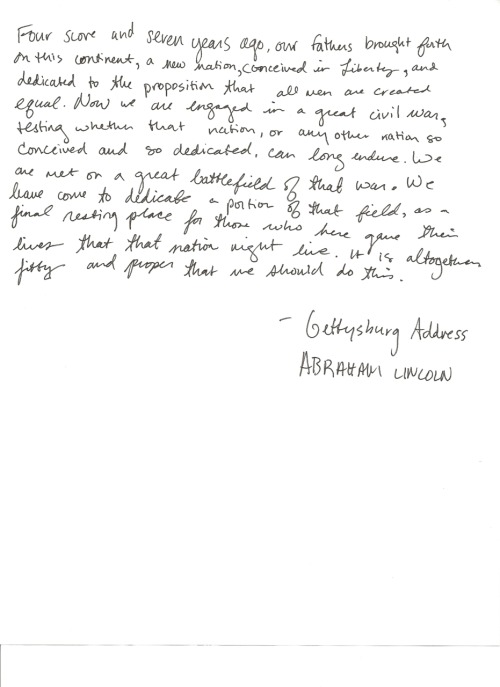 Four score and seven years ago, our fathers brought forth
on this continent, a new nation, conceived in Liberty, and
dedicated to the proposition that all men are created
equal. Now we are engaged in a great civil war,
testing whether that nation, or any other nation so
conceived and so dedicated, can long endure. We
are met on a great battlefield of that war. We
have come to dedicate a portion of that field, as a
final resting place for those who here gave their
lives that that nation might live. It is altogether
fitting and proper that we should do this.
- Gettysburg Address
ABRAHAM LINCOLN